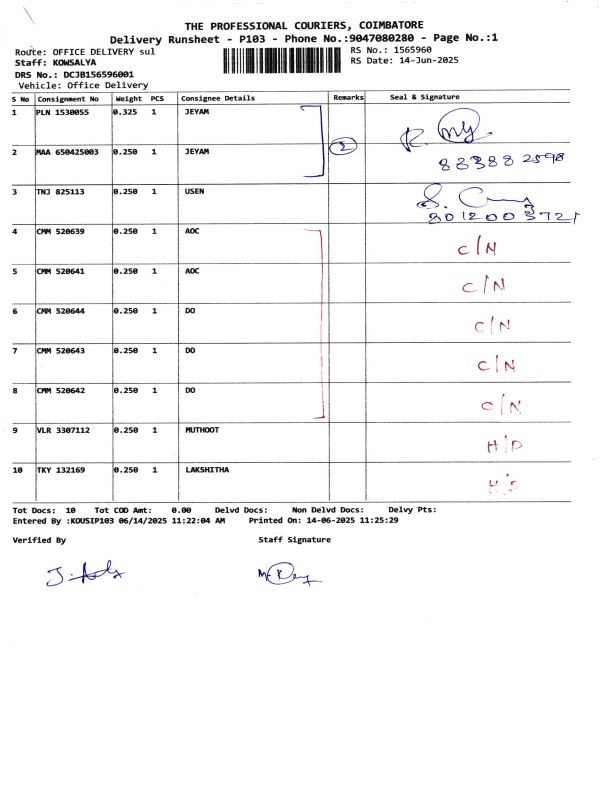 THE PROFESSIONAL COURIERS, COIMBATORE
Delivery Runsheet - P103 - Phone No.:9047080280 - Page No.:1
Route: OFFICE DELIVERY sul RS No.: 1565960
Staff: KOWSALYA RS Date: 14-Jun-2025
DRS No.: DCJB156596001
Vehicle: Office Delivery
S No Consignment No Weight PCS Consignee Details Remarks Seal & Signature
1 PLN 1530055 0.325 1 JEYAM
2 MAA 650425003 0.250 1 JEYAM 2 88388 2598
3 TNJ 825113 0.250 1 USEN 8012003721
4 CMM 520639 0.250 1 AOC C/N
5 CMM 520641 0.250 1 AOC C/N
6 CMM 520644 0.250 1 DO C/N
7 CMM 520643 0.250 1 DO C/N
8 CMM 520642 0.250 1 DO C/N
9 VLR 3307112 0.250 1 MUTHOOT H/P
10 TKY 132169 0.250 1 LAKSHITHA
Tot Docs: 10 Tot COD Amt: 0.00 Delvd Docs: Non Delvd Docs: Delvy Pts:
Entered By :KOUSIP103 06/14/2025 11:22:04 AM Printed On: 14-06-2025 11:25:29
Verified By Staff Signature